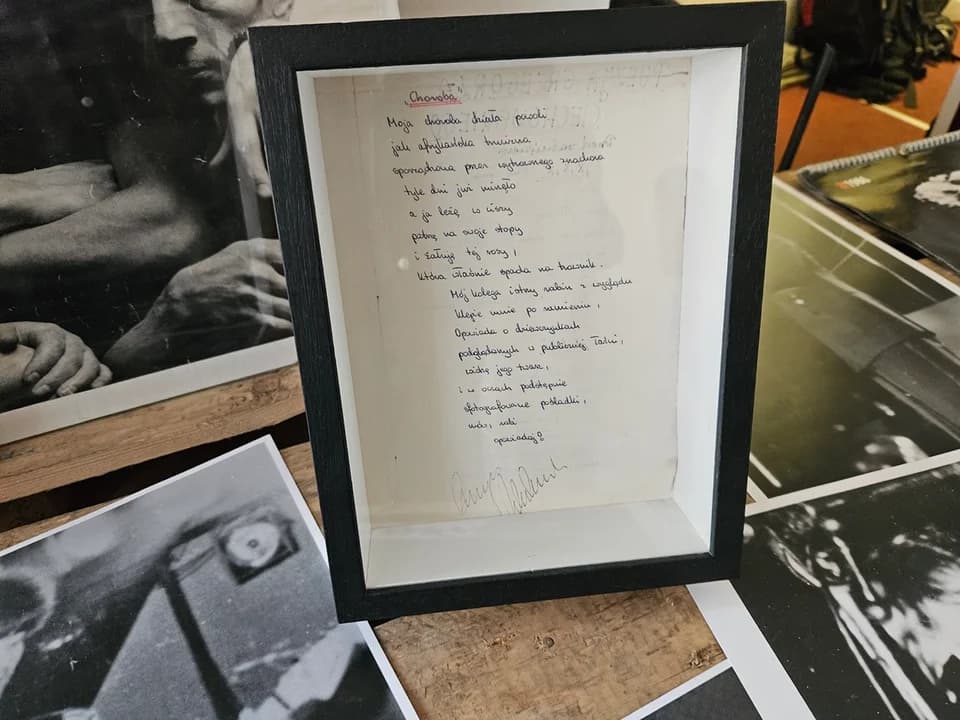 „Choroba"
Moja choroba działa powoli
jak afrykańska trucizna
sporządzona przez wytrawnego znachora
tyle dni już minęło
a ja leżę w ciszy
patrzę na swoje stopy
i żałuję tej rosy,
która właśnie opada na trawnik.
Mój kolega istny rabin z wyglądu
klepie mnie po ramieniu,
Opowiada o dziewczynkach
podglądanych w publicznej łaźni,
widzę jego twarz,
i w oczach podstępnie
sfotografowane pośladki,
mów, rabi
opowiadaj!